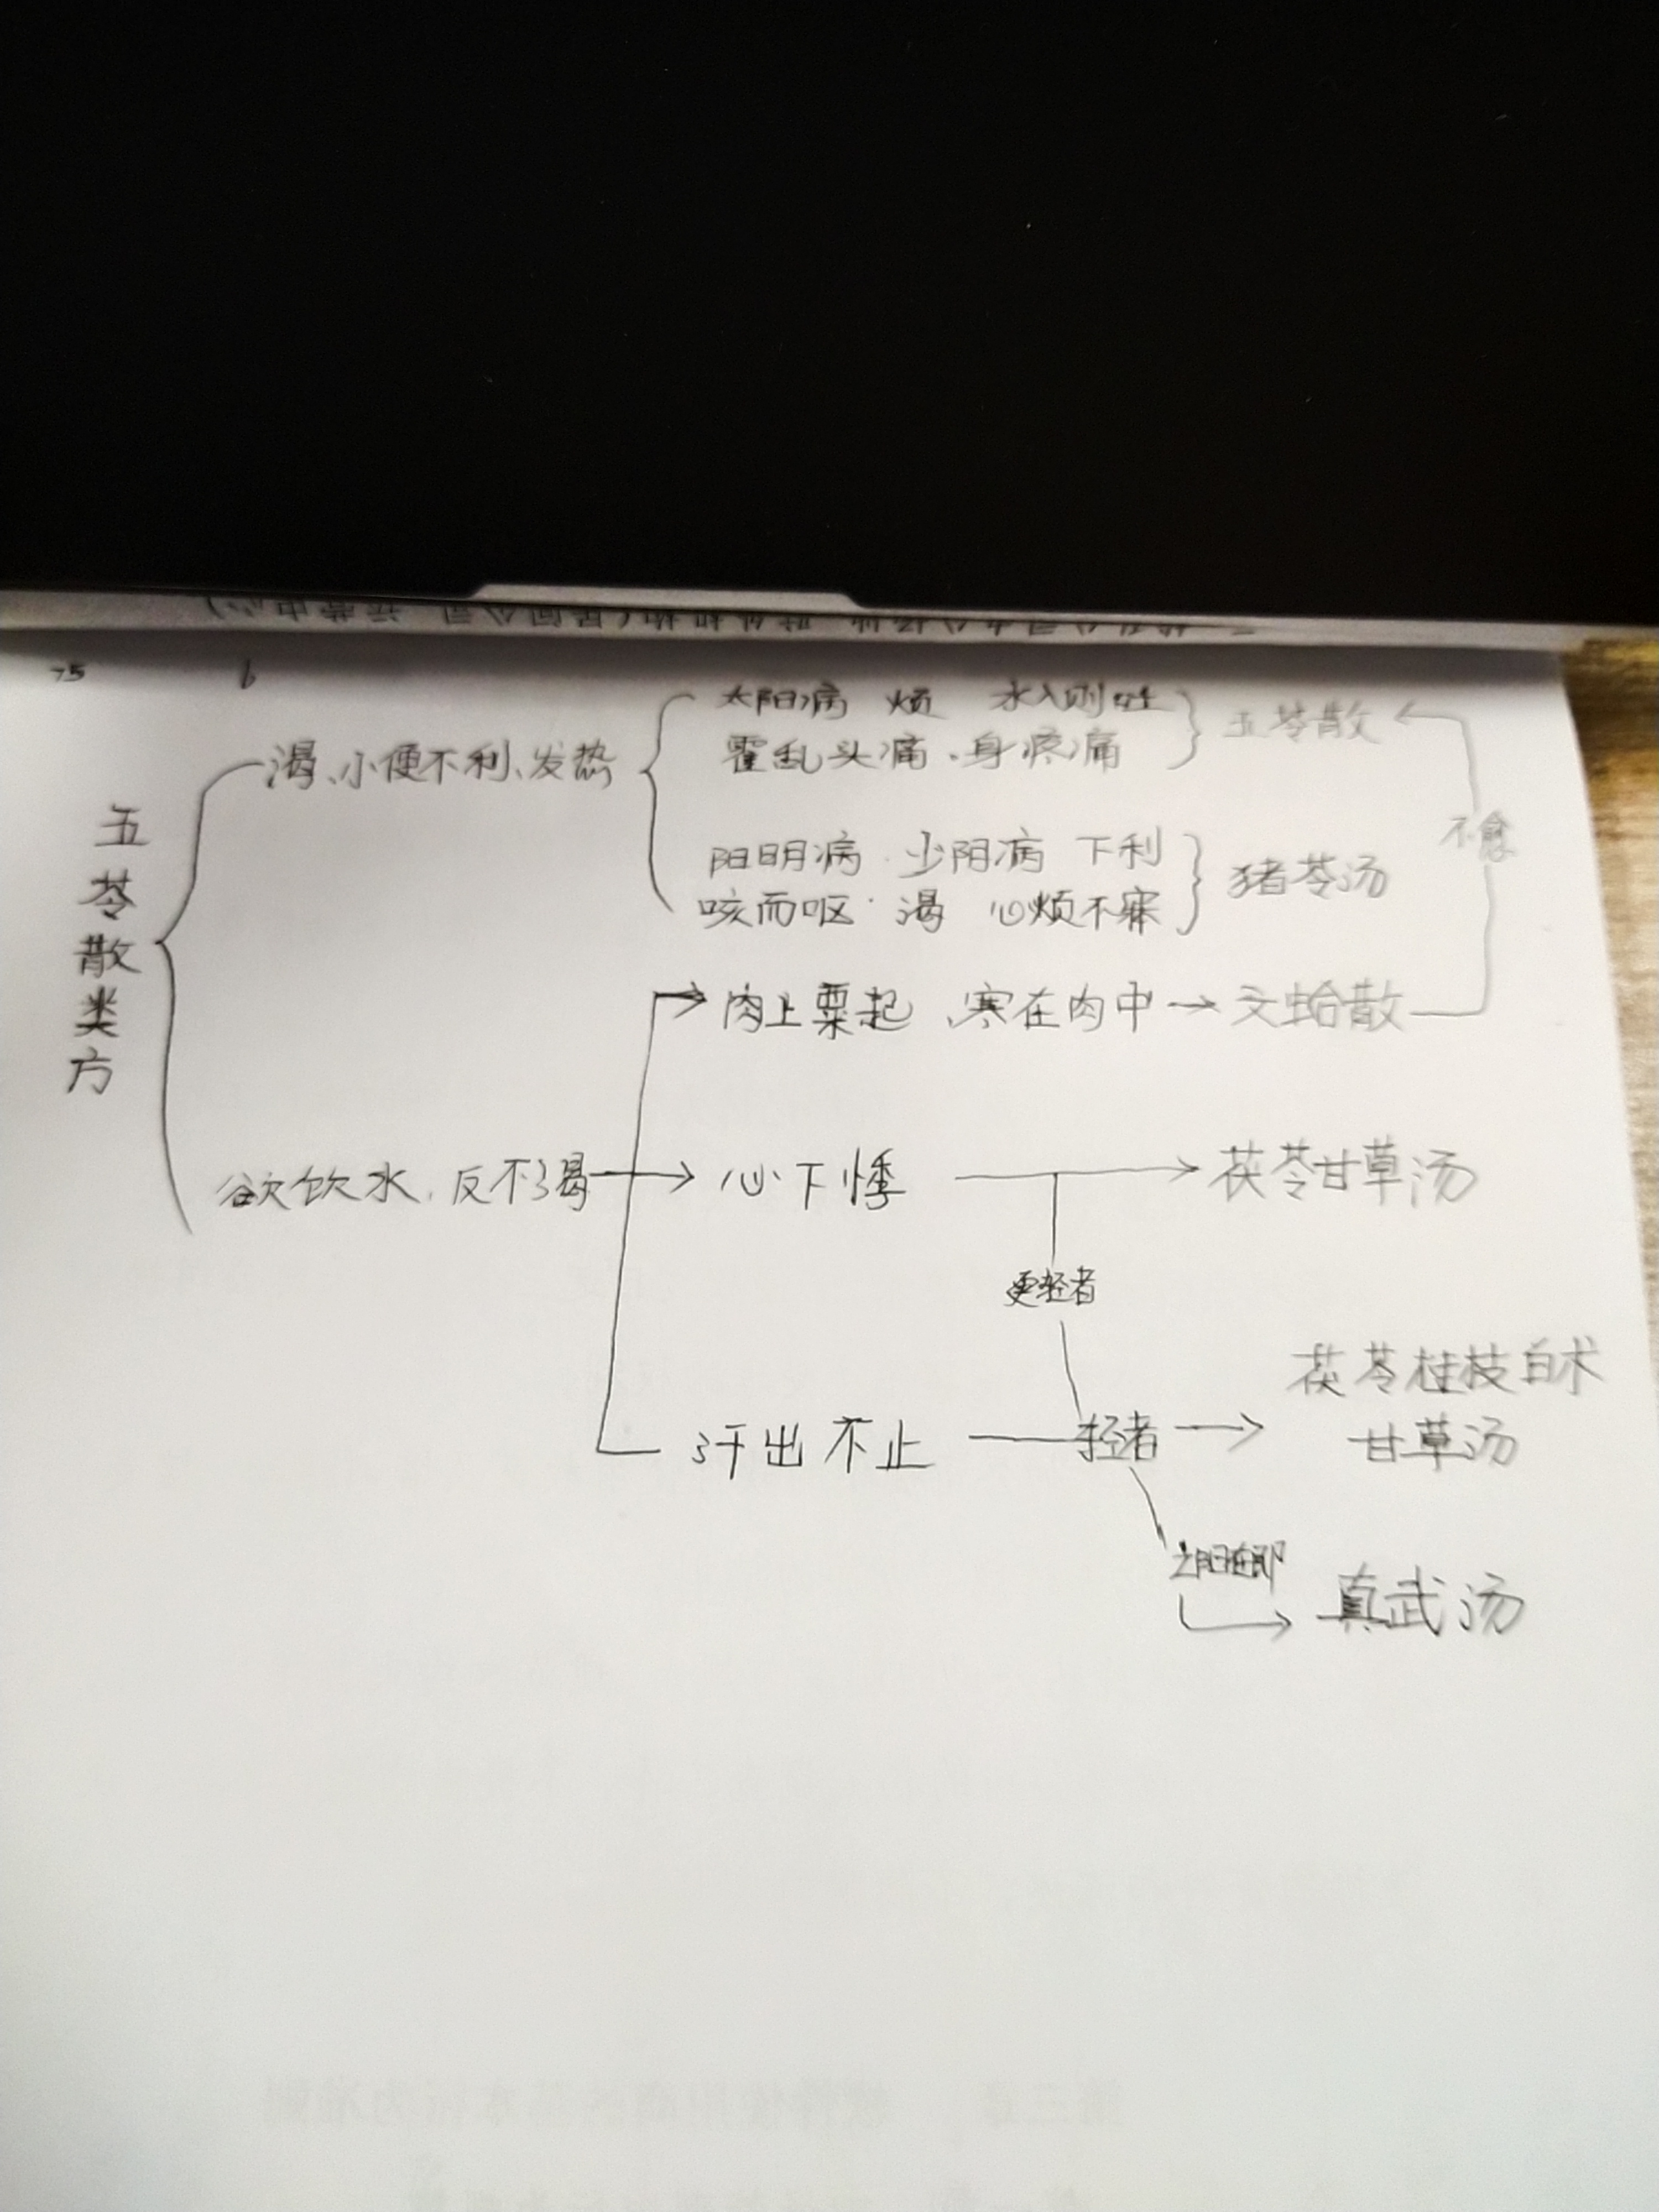 75 6
五苓散类方
渴、小便不利、发热
太阳病 烦 水入则吐
霍乱头痛、身疼痛
五苓散
阳明病 少阴病 下利
咳而呕 渴 心烦不寐
猪苓汤
不愈
肉上粟起、寒在肉中 → 文蛤散
欲饮水、反不渴
心下悸
茯苓甘草汤
更轻者
汗出不止
轻者
茯苓桂枝白术
甘草汤
亡阳在即
真武汤